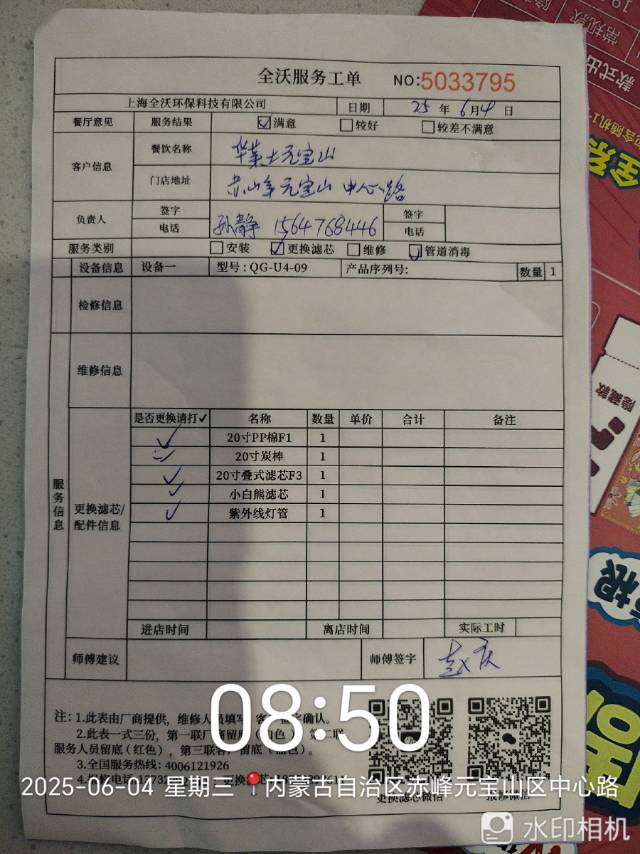 全沃服务工单 NO:5033795
上海全沃环保科技有限公司 日期 25 年 6月 4 日
餐厅意见 服务结果 ☑满意 □较好 □较差不满意
客户信息 餐饮名称 华莱士元宝山
门店地址 赤峰元宝山 中心路
负责人 签字 电话 孙静 15647768446 签字 电话
服务类别 □安装 ☑更换滤芯 □维修 ☑管道消毒
设备信息 设备一 型号:QG-U4-09 产品序列号: 数量 1
检修信息
维修信息
服务信息
更换滤芯/配件信息
是否更换请打✓ 名称 数量 单价 合计 备注
✓ 20寸PP棉F1 1
✓ 20寸炭棒 1
✓ 20寸叠式滤芯F3 1
✓ 小白熊滤芯 1
✓ 紫外线灯管 1
进店时间 离店时间 实际工时
师傅建议 师傅签字 赵庆
注:1.此表由厂商提供,维修人员填写,客户确认。
2.此表一式三份,第一联厂商留底(白色),第二联
服务人员留底(红色),第三联客户留底
3.全国服务热线:4006121926
4.报修电话
更换滤芯微信 报修微信
08:50
2025-06-04 星期三 内蒙古自治区赤峰元宝山区中心路
水印相机
款式出
常规款
隐藏款
全系